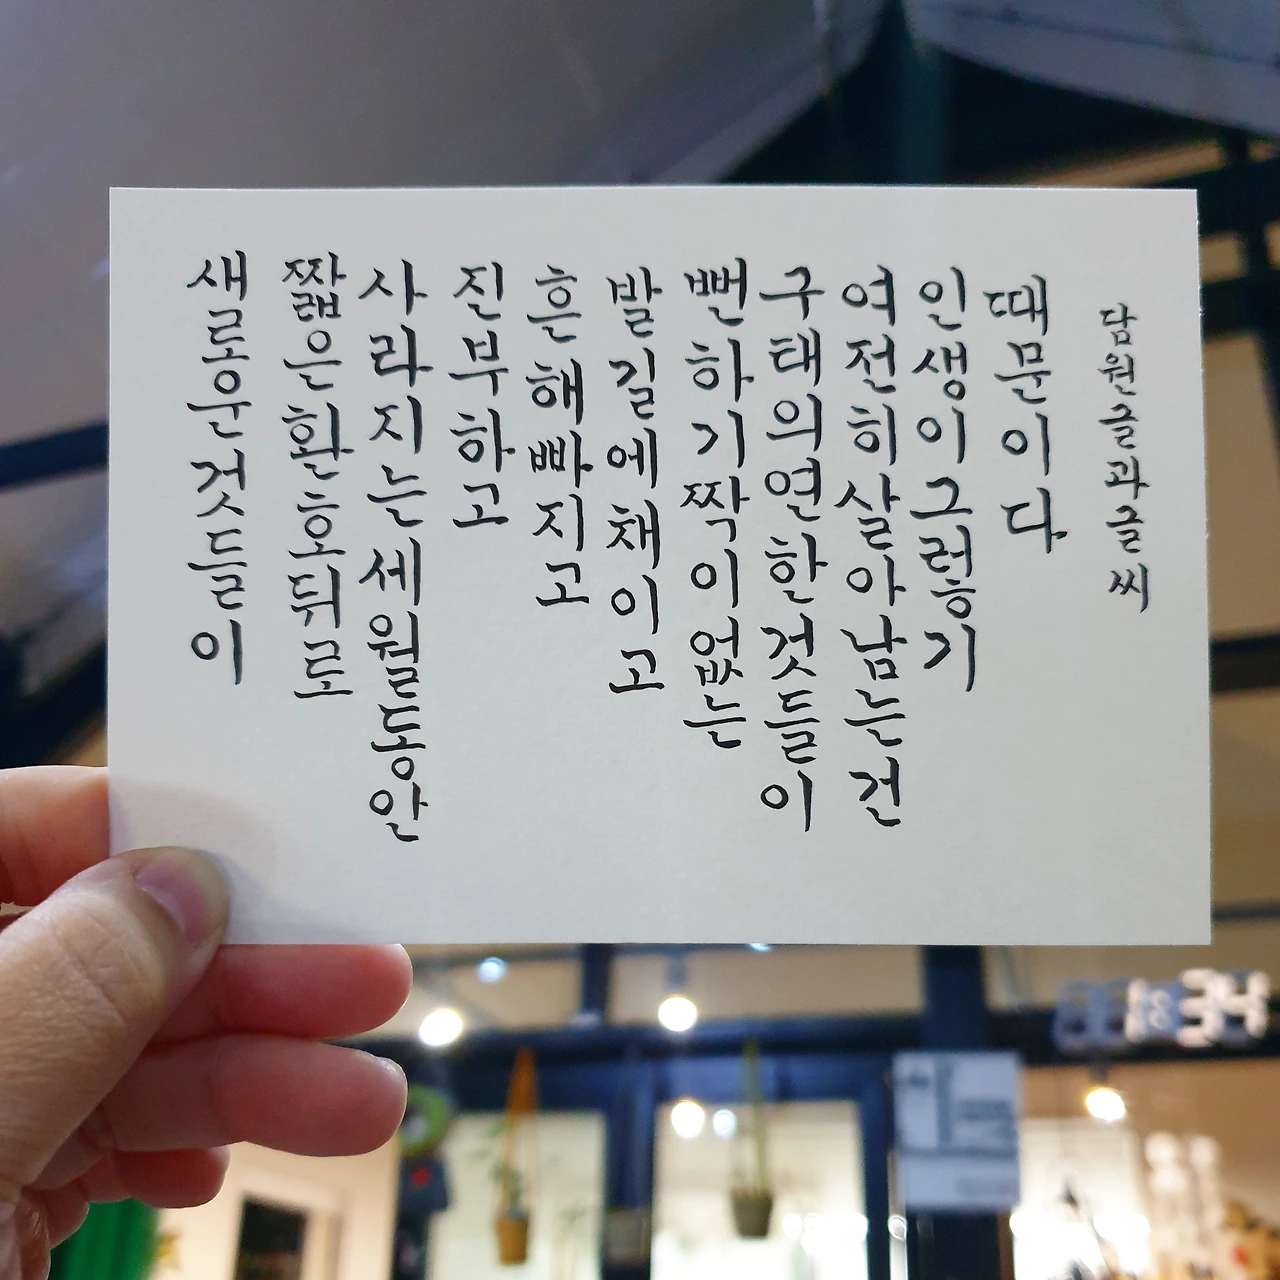 새로운 것들이
짧은 환호 뒤로
사라지는 세월동안
진부하고
흔해빠지고
발길에 채이고
뻔하기 짝이 없는
구태의연한 것들이
여전히 살아남는 건
인생이 그렇기
때문이다
담원글과글씨